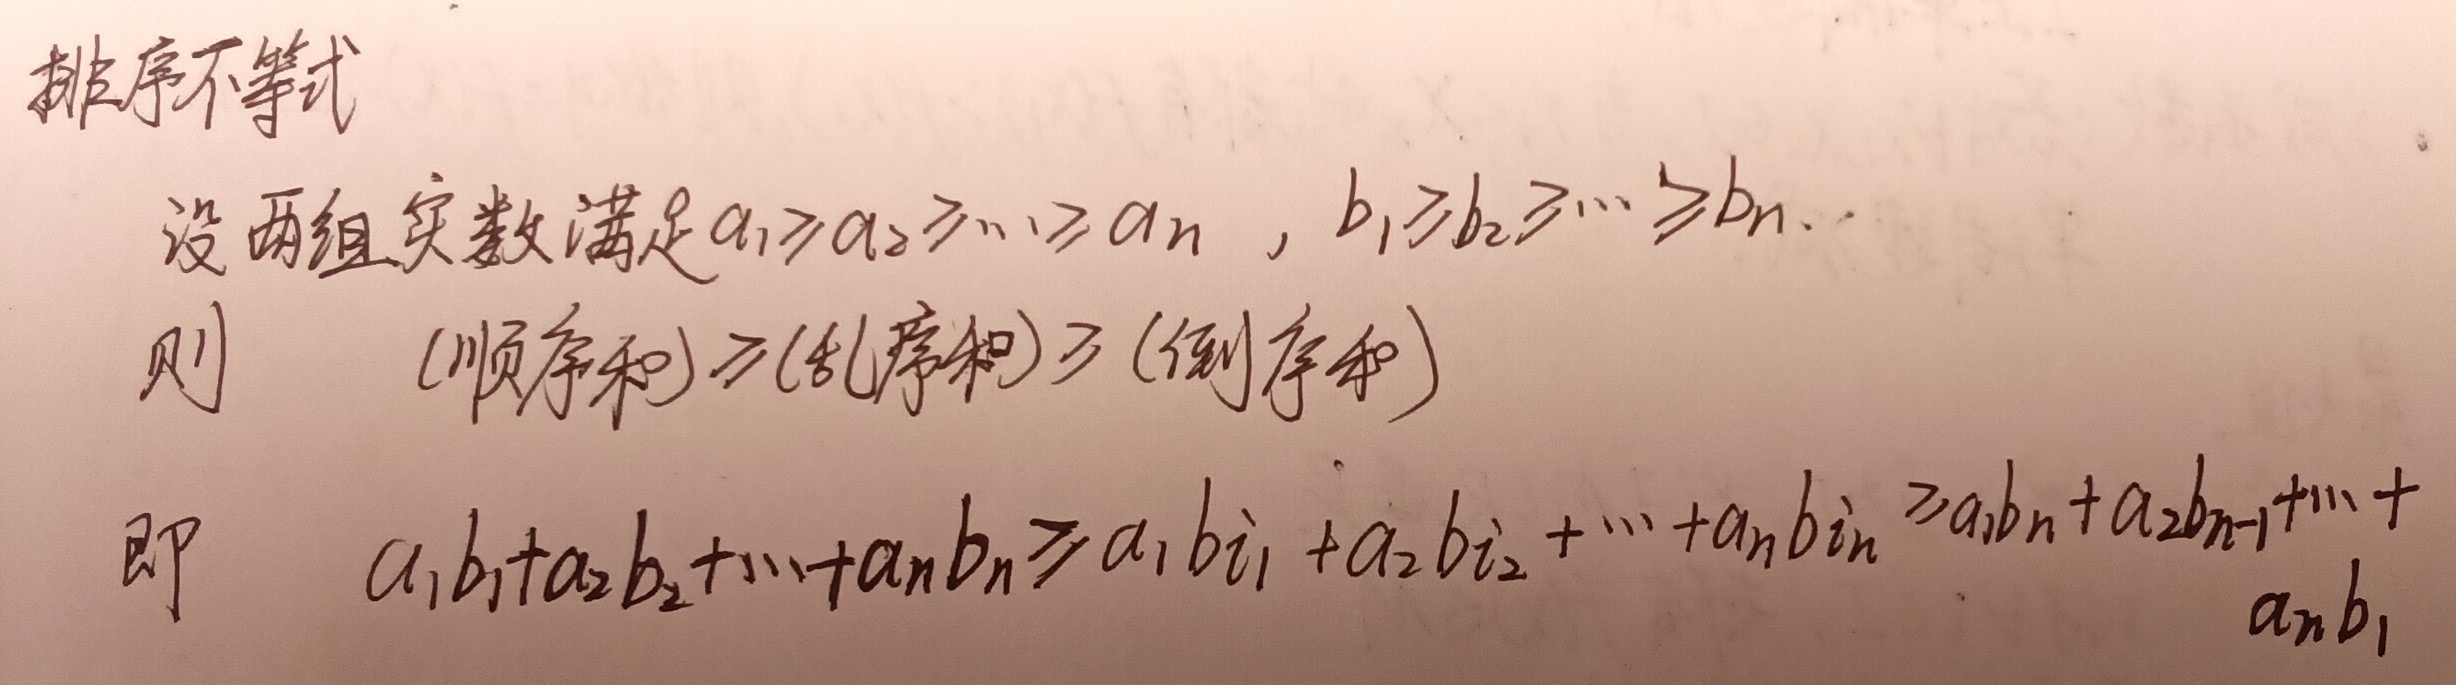 排序不等式
设两组实数满足a₁≥a₂≥…≥aₙ，b₁≥b₂≥…≥bₙ.
则 (顺序和)≥(乱序和)≥(倒序和)
即 a₁b₁+a₂b₂+…+aₙbₙ≥a₁bi₁+a₂bi₂+…+aₙbiₙ≥a₁bₙ+a₂bₙ₋₁+…+
aₙb₁